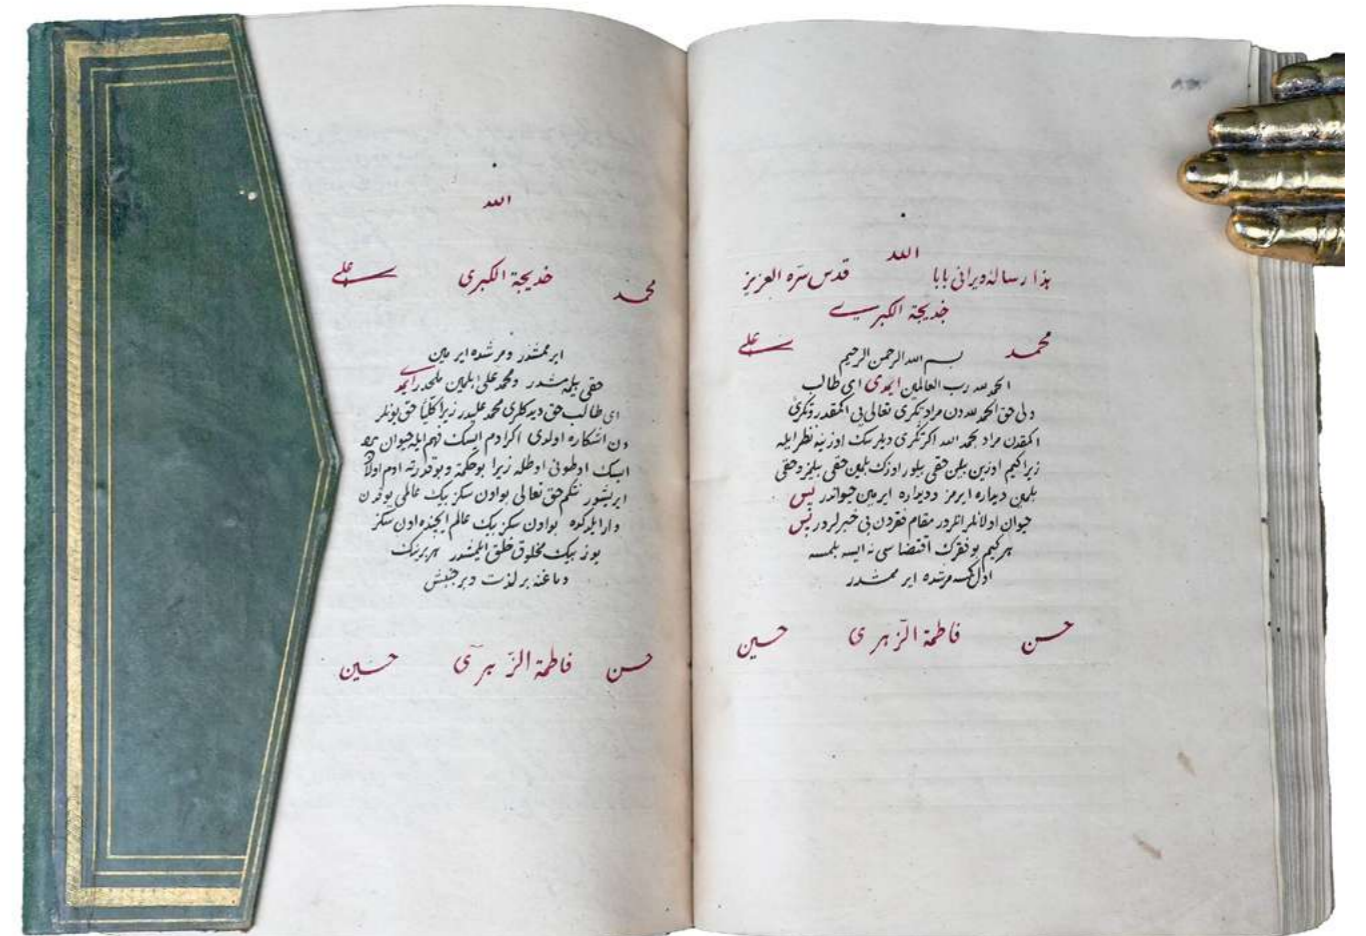 الله
هذا رسالۀ ویرانی بابا قدس سرّه العزیز
خدیجة الکبری
محمد علی
بسم الله الرحمن الرحیم
الحمد لله رب العالمین ایمدی ای طالب
ولی حق الحمد لله دن مراد تکری تعالی یی اکمقدر و تکری
اکمقدن مراد محمد الله اکر تکری دیلرسک اوزینه نظر ایله
زیرا کیم اوزین بیلن حقی بیلور اوزک بلمین حقی بیلمز و حقی
بلمین دیداره ایرمز و دیداره ایرمین حیواندر پس
حیوان اولانلر انلردر مقام فقردن بی خبرلردر پس
هرکیم بو فقرک اقتضاسی نه ایسه بلمسه
اول کمسه مرشده ایرممشدر
حسن فاطمة الزهری حسین
الله
محمد خدیجة الکبری علی
ایرممشدر و مرشده ایرمین
حقی بیلمه مشدر و محمد علی بلمین ملحددر ایمدی
ای طالب حق دیدکلری محمد علیدر زیرا کلیاً حق بونلر
دن اشکاره اولدی اکر ادم ایسک فهم ایله حیوان
ایسک اوطونی اوطله زیرا بو حکمه و بو قدرته ادم اولان
ایریشور نتکم حق تعالی بو اون سکز بیک عالمی یوقدن
وار ایلدکده بو اون سکز بیک عالم ایچنده اون سکز
یوز بیک مخلوق خلق ایلمشدر هر برینک
دماغنه بر لذت و بر جنبش
حسن فاطمة الزهری حسین